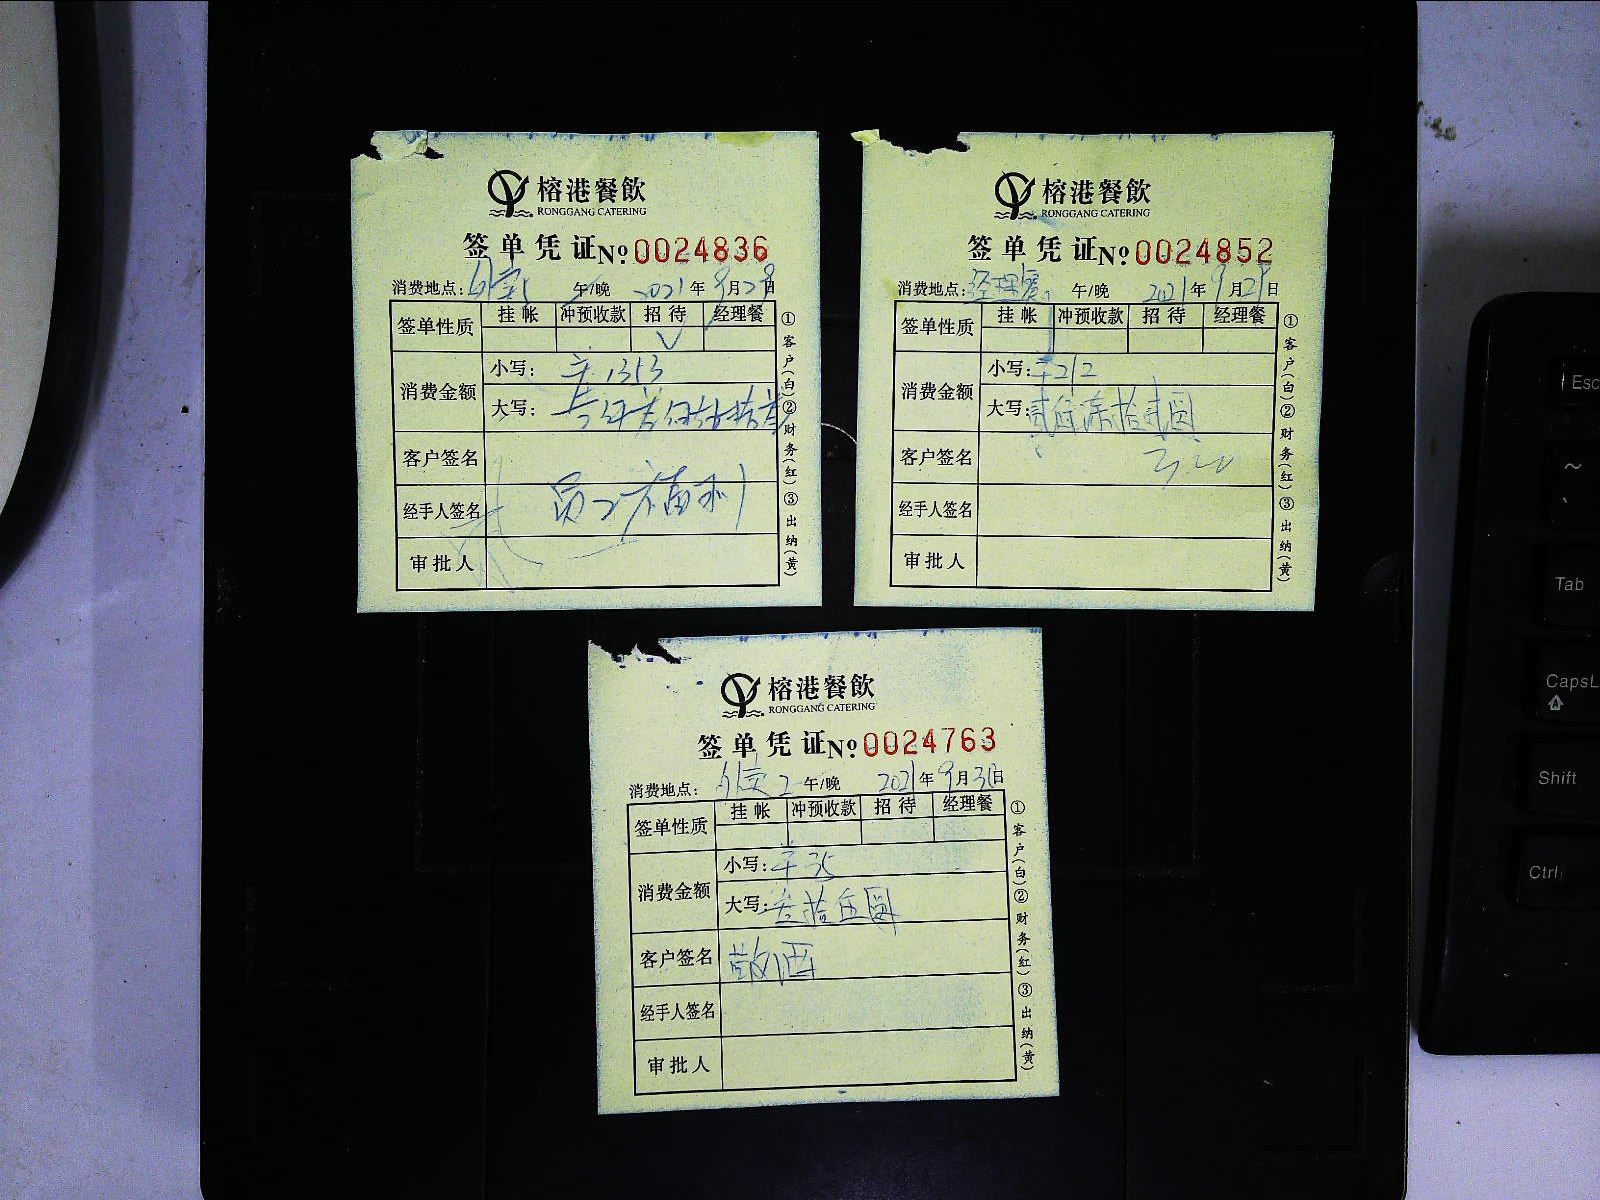 榕港餐飲
RONGGANG CATERING
签单凭证№0024836
消费地点: 午/晚 2021年9月29日
签单性质 挂帐 冲预收款 招待 经理餐
✓
消费金额 小写: 1313
大写:
客户签名
经手人签名 员工 福利
审批人
①客户(白)②财务(红)③出纳(黄)
榕港餐飲
RONGGANG CATERING
签单凭证№0024852
消费地点:经理餐 午/晚 2021年9月29日
签单性质 挂帐 冲预收款 招待 经理餐
消费金额 小写: 212
大写:
客户签名
经手人签名
审批人
①客户(白)②财务(红)③出纳(黄)
榕港餐飲
RONGGANG CATERING
签单凭证№0024763
消费地点: 2 午/晚 2021年9月31日
签单性质 挂帐 冲预收款 招待 经理餐
消费金额 小写: 35
大写:叁拾伍圆
客户签名 敬酒
经手人签名
审批人
①客户(白)②财务(红)③出纳(黄)
Esc
~
Tab
CapsL
Shift
Ctrl